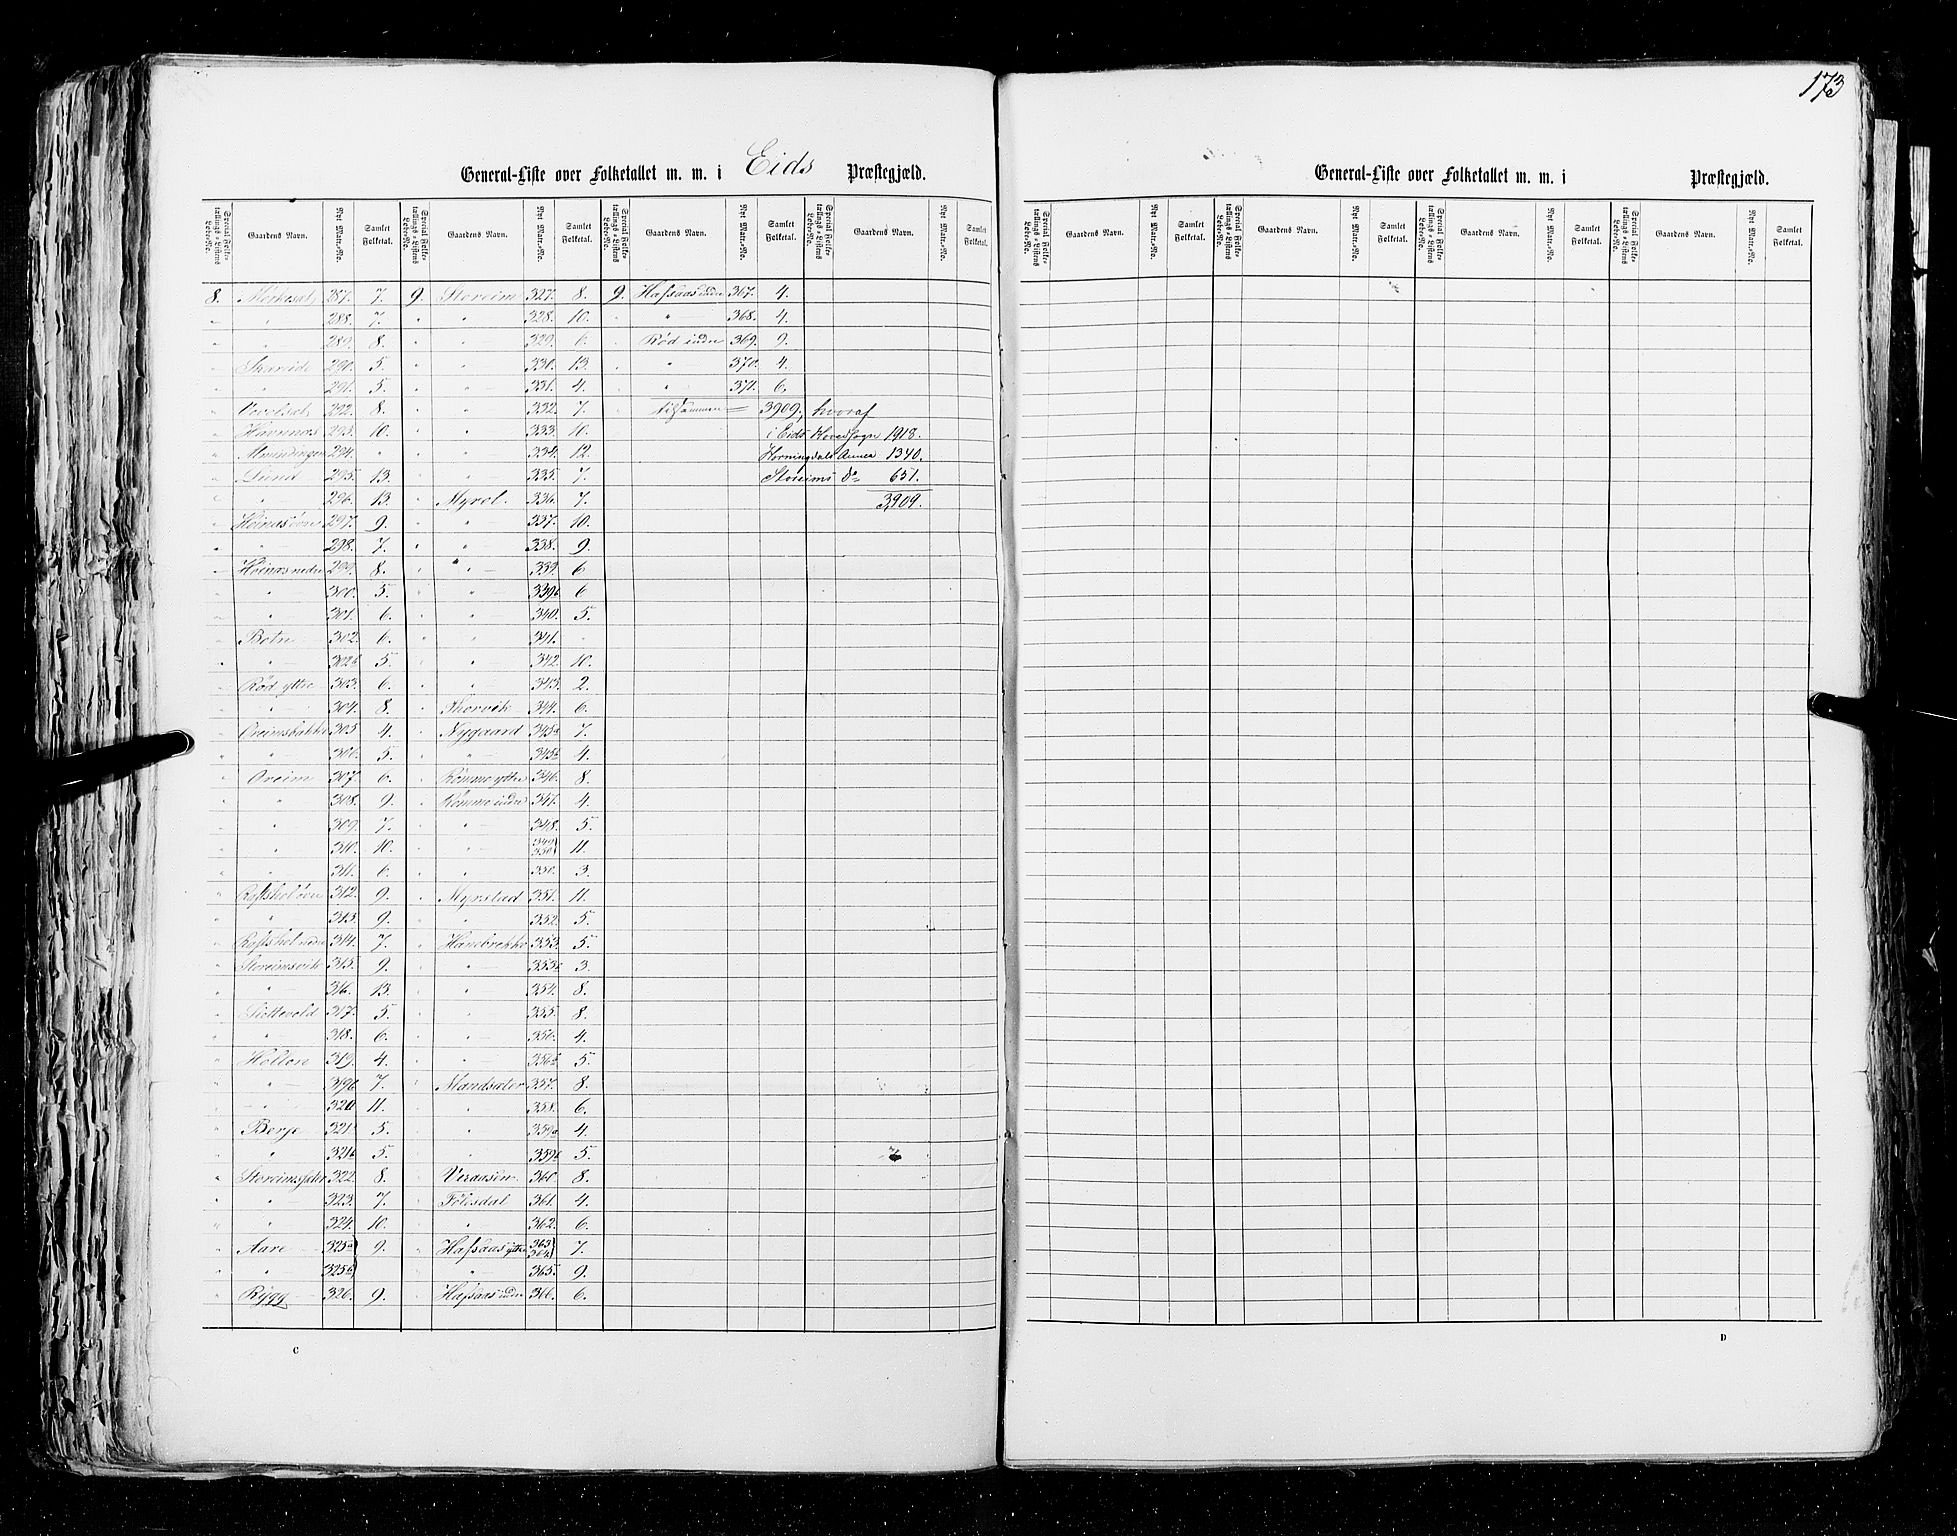 173
General-Liste over Folketallet m. m. i Eids Præstegjæld.
Special Folketællings-Listens Løbe-No. Gaardens Navn. Nyt Matr.-No. Samlet Folketal. Special Folketællings-Listens Løbe-No. Gaardens Navn. Nyt Matr.-No. Samlet Folketal. Special Folketællings-Listens Løbe-No. Gaardens Navn. Nyt Matr.-No. Samlet Folketal. Special Folketællings-Listens Løbe-No. Gaardens Navn. Nyt Matr.-No. Samlet Folketal.
8. 287. 7. 9. Storeim 327. 8. 9. Hafsaas indre 367. 4.
" " 288. 7. " " 328. 10. " " 368. 4.
" " 289. 8. " " 329. 6. " Rød indre 369. 9.
" 290. 5. " " 330. 13. " " 370. 4.
" " 291. 5. " " 331. 4. " " 371. 6.
" 292. 8. " " 332. 7. " tilsammen 3909, hvoraf
" Havnnæs 293. 10. " " 333. 10. i Eids Hovedsogn 1918.
" Almindingen 294. " " " 334. 12. Horningdals Annex 1340.
" Lund 295. 13. " " 335. 7. Storeims do 651.
" " 296. 13. " Myrol 336. 7. 3,909.
" Heinæs øvre 297. 9. " " 337. 10.
" " 298. 7. " " 338. 9.
" Heinæs nedre 299. 8. " " 339. 6
" " 300. 5. " " 339b 6
" " 301. 6. " " 340. 5.
" Botn 302. 6. " " 341. "
" " 302b 5. " " 342. 10.
" Rød ytre 303. 6. " " 343. 2.
" " 304. 8. " Thorvik 344. 6.
" Oreimsbakke 305 4. " Nygaard 345a 7.
" " 306. 5. " " 345b 4.
" Oreim 307. 6. " Rømme ytre 346. 8.
" " 308. 9. " Rømme indre 347. 4.
" " 309. 7. " " 348. 5.
" " 310. 10. " " 349 350 11.
" " 311. 6. " " 350. 3.
" 312. 9. " Myrstad 351. 11.
" " 313. 9. " " 352. 5.
" 314. 7. " Hanebrekke 353. 5.
" Storeimsvik 315. 9. " " 353b 3.
" " 316. 13. " " 354. 8.
" 317. 5. " " 355. 8.
" " 318. 6. " " 356. 4.
" Holten 319. 4. " " 356b 5.
" " 319b 7. " Mandsæter 357. 8.
" " 320 11. " " 358. 6.
" Berge 321. 5. " " 359a 4.
" " 321b 5. " " 359b 5.
" Storeimssæter 322. 8. " Veraasen 360. 8.
" " 323. 7. " Følesdal 361. 4.
" " 324. 10. " " 362. 6.
" Aare 325a 9. " Hafsaas ytre 363 364 7.
" " 325b " " 365. 9.
" Rygg 326. 9. " Hafsaas indre 366. 6.
C
General-Liste over Folketallet m. m. i Præstegjæld.
Special Folketællings-Listens Løbe-No. Gaardens Navn. Nyt Matr.-No. Samlet Folketal. Special Folketællings-Listens Løbe-No. Gaardens Navn. Nyt Matr.-No. Samlet Folketal. Special Folketællings-Listens Løbe-No. Gaardens Navn. Nyt Matr.-No. Samlet Folketal. Special Folketællings-Listens Løbe-No. Gaardens Navn. Nyt Matr.-No. Samlet Folketal.
D